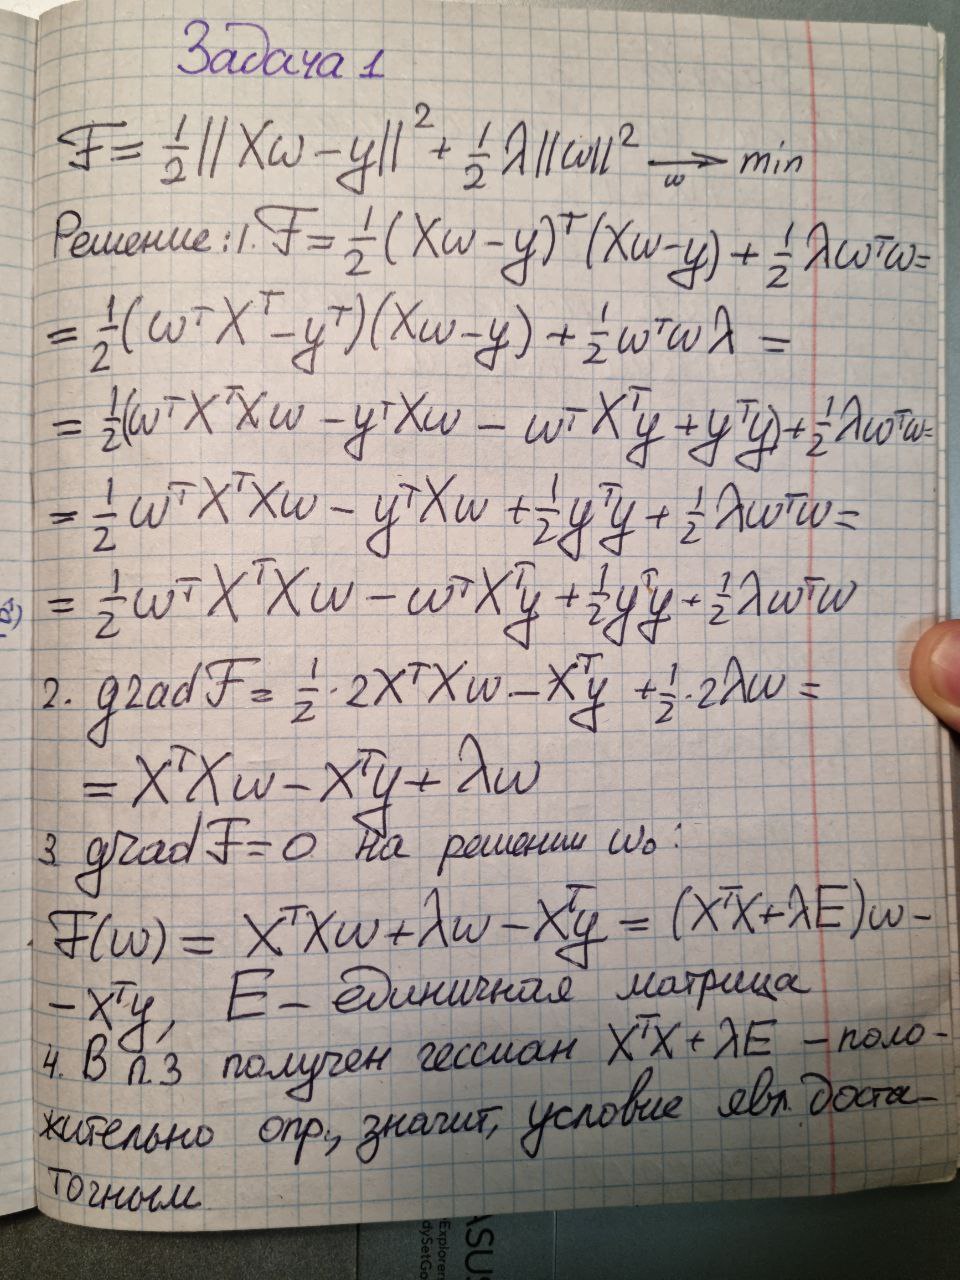 Задача 1
F = 1/2 ||Xω - y||² + 1/2 λ||ω||² →_ω min
Решение: 1. F = 1/2 (Xω - y)ᵀ (Xω - y) + 1/2 λωᵀω =
= 1/2 (ωᵀXᵀ - yᵀ)(Xω - y) + 1/2 ωᵀω λ =
= 1/2 (ωᵀXᵀXω - yᵀXω - ωᵀXᵀy + yᵀy) + 1/2 λωᵀω =
= 1/2 ωᵀXᵀXω - yᵀXω + 1/2 yᵀy + 1/2 λωᵀω =
= 1/2 ωᵀXᵀXω - ωᵀXᵀy + 1/2 yᵀy + 1/2 λωᵀω
2. grad F = 1/2 · 2XᵀXω - Xᵀy + 1/2 · 2λω =
= XᵀXω - Xᵀy + λω
3. grad F = 0 на решении ω₀:
F(ω) = XᵀXω + λω - Xᵀy = (XᵀX + λE)ω -
- Xᵀy, E - единичная матрица
4. В п.3 получен гессиан XᵀX + λE - поло-
жительно опр., значит, условие явл. доста-
точным
ASUS
Explorer
dySetGo